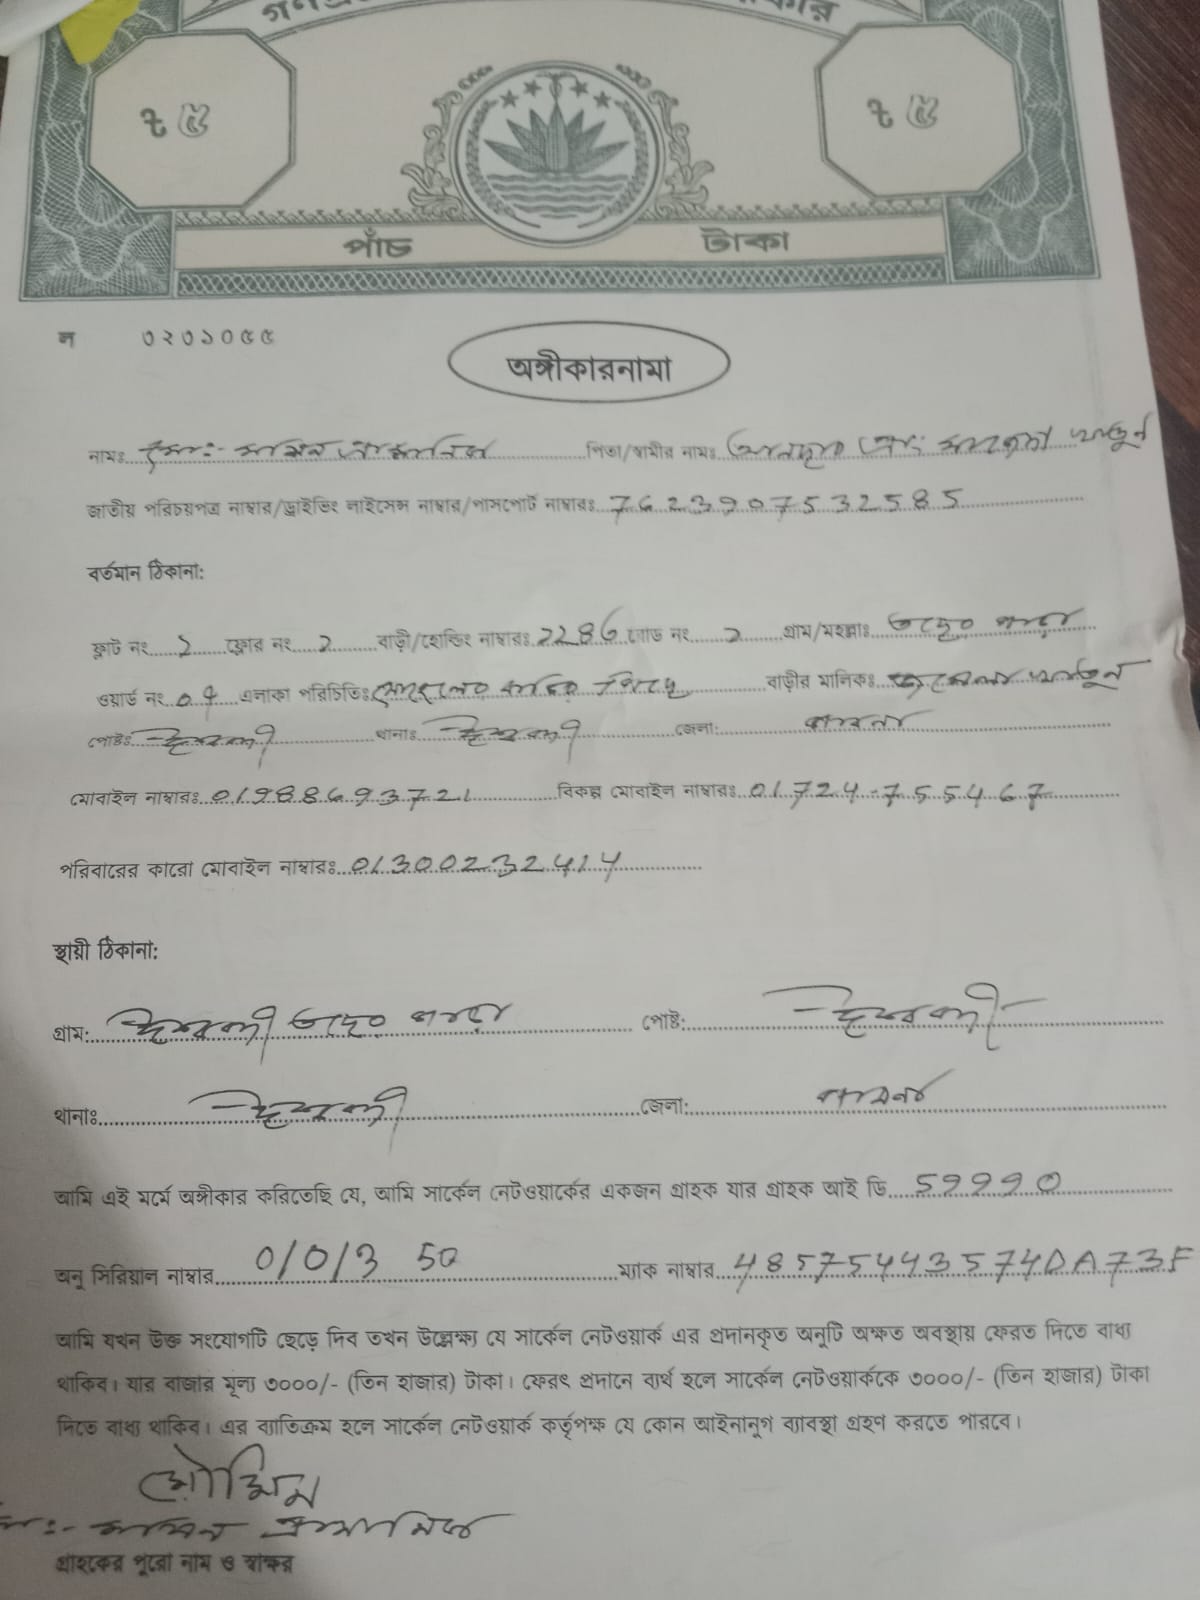 ৳ ৫ ৳ ৫
পাঁচ টাকা
ন ৩২৩১০৫৫
অঙ্গীকারনামা
নামঃ মোঃ- মমিন প্রামানিক পিতা/স্বামীর নামঃ
জাতীয় পরিচয়পত্র নাম্বার/ড্রাইভিং লাইসেন্স নাম্বার/পাসপোর্ট নাম্বারঃ 7623907532585
বর্তমান ঠিকানা:
ফ্লাট নং ২ ফ্লোর নং ২ বাড়ী/হোল্ডিং নাম্বারঃ 2286 রোড নং ২ গ্রাম/মহল্লাঃ পাড়া
ওয়ার্ড নং 04 এলাকা পরিচিতিঃ বাড়ির পিছে বাড়ীর মালিকঃ খাতুন
পোষ্টঃ ঈশ্বরদী থানাঃ ঈশ্বরদী জেলা: পাবনা
মোবাইল নাম্বারঃ 01988693721 বিকল্প মোবাইল নাম্বারঃ 01724-755467
পরিবারের কারো মোবাইল নাম্বারঃ 01300232414
স্থায়ী ঠিকানা:
গ্রাম: ঈশ্বরদী পাড়া পোষ্ট: ঈশ্বরদী
থানাঃ ঈশ্বরদী জেলা: পাবনা
আমি এই মর্মে অঙ্গীকার করিতেছি যে, আমি সার্কেল নেটওয়ার্কের একজন গ্রাহক যার গ্রাহক আই ডি 59990
অনু সিরিয়াল নাম্বার 0/0/3 50 ম্যাক নাম্বার 485754435740DA73F
আমি যখন উক্ত সংযোগটি ছেড়ে দিব তখন উল্লেক্ষ্য যে সার্কেল নেটওয়ার্ক এর প্রদানকৃত অনুটি অক্ষত অবস্থায় ফেরত দিতে বাধ্য
থাকিব। যার বাজার মূল্য ৩০০০/- (তিন হাজার) টাকা। ফেরৎ প্রদানে ব্যর্থ হলে সার্কেল নেটওয়ার্ককে ৩০০০/- (তিন হাজার) টাকা
দিতে বাধ্য থাকিব। এর ব্যাতিক্রম হলে সার্কেল নেটওয়ার্ক কর্তৃপক্ষ যে কোন আইনানুগ ব্যাবস্থা গ্রহণ করতে পারবে।
মৌমিন
মোঃ- মমিন প্রামানিক
গ্রাহকের পুরো নাম ও স্বাক্ষর